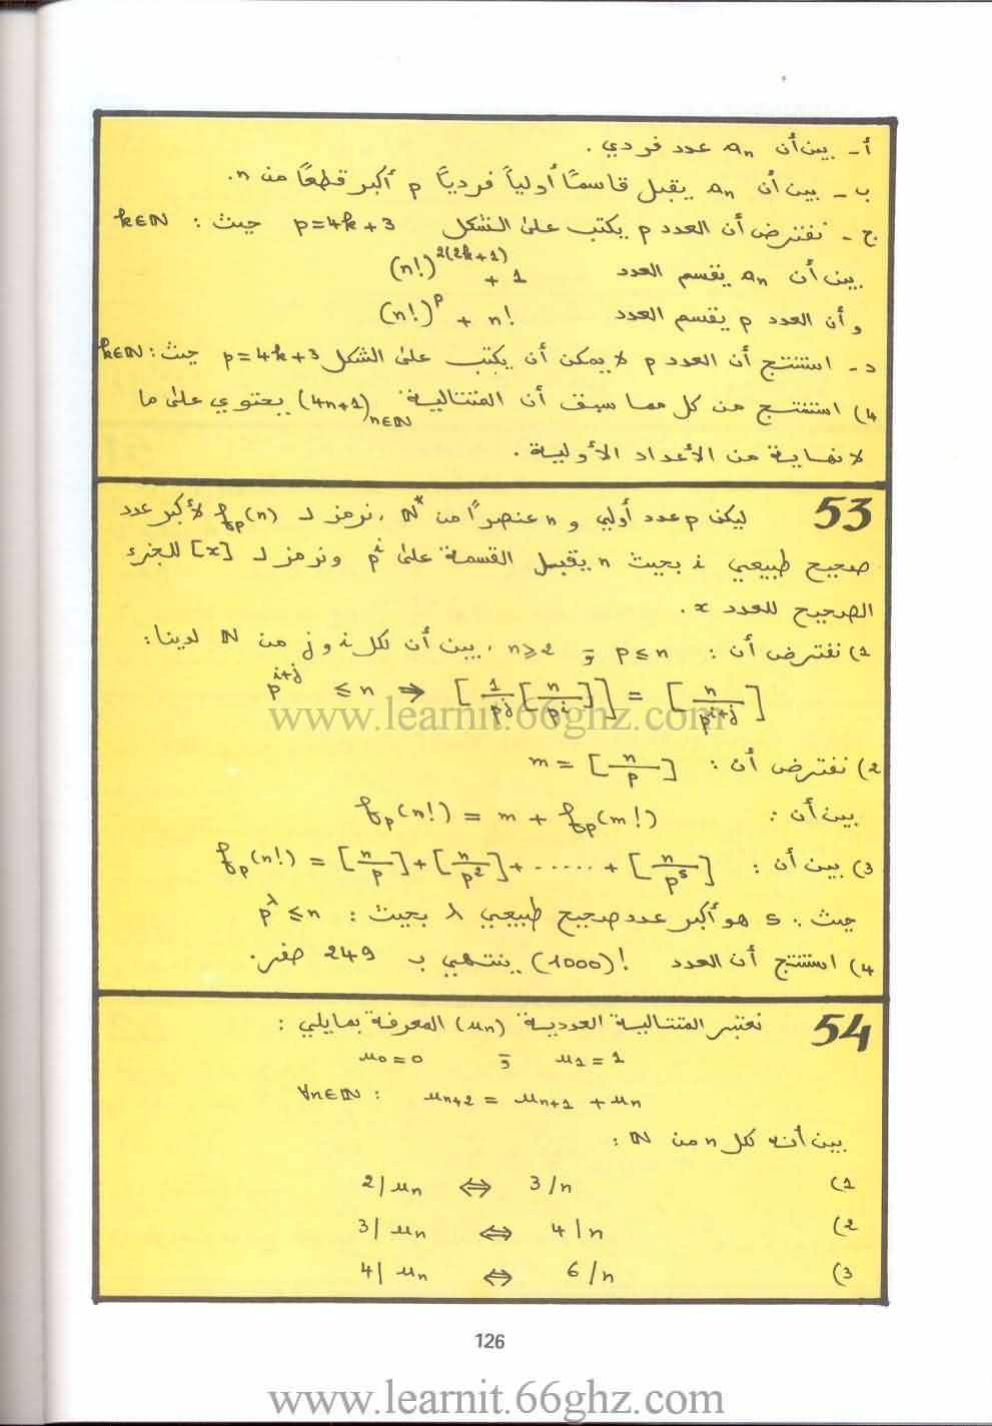 أ - بين أن aₙ عدد فردي .
ب - بين أن aₙ يقبل قاسمًا أولياً فرديًا p أكبر قطعًا من n.
ج - نفترض أن العدد p يكتب على الشكل p=4k+3 حيث : k∈ℕ
بين أن aₙ يقسم العدد (n!)^{2(2k+1)} + 1
و أن العدد p يقسم العدد (n!)^p + n!
د - استنتج أن العدد p لا يمكن أن يكتب على الشكل p=4k+3 حيث : k∈ℕ
4) استنتج من كل مما سبق أن المتتالية (4n+1)_{n∈ℕ} يحتوي على ما
لا نهاية من الأعداد الأولية .
53 ليكن p عدد أولي و n عنصرًا من ℕ* ، نرمز لـ f_p(n) لأكبر عدد
صحيح طبيعي i بحيث n يقبل القسمة على p^i ونرمز لـ [x] للجزء
الصحيح للعدد x .
1) نفترض أن : p ≤ n و n ≥ 2 ، بين أن لكل i و j من ℕ لدينا :
p^{i+j} ≤ n ⇒ [1/p^j [n/p^i]] = [n/p^{i+j}]
www.learnit.66ghz.com
2) نفترض أن : m = [n/p]
بين أن : f_p(n!) = m + f_p(m!)
3) بين أن : f_p(n!) = [n/p] + [n/p^2] + ...... + [n/p^s]
حيث : s هو أكبر عدد صحيح طبيعي λ بحيث : p^λ ≤ n
4) استنتج أن العدد (1000)! ينتهي ب 249 صفر.
54 نعتبر المتتالية العددية (uₙ) المعرفة بمايلي :
u₀ = 0 و u₁ = 1
∀n∈ℕ : u_{n+2} = u_{n+1} + u_n
بين أنه لكل n من ℕ :
1) 2/uₙ ⇔ 3/n
2) 3/uₙ ⇔ 4/n
3) 4/uₙ ⇔ 6/n
126
www.learnit.66ghz.com